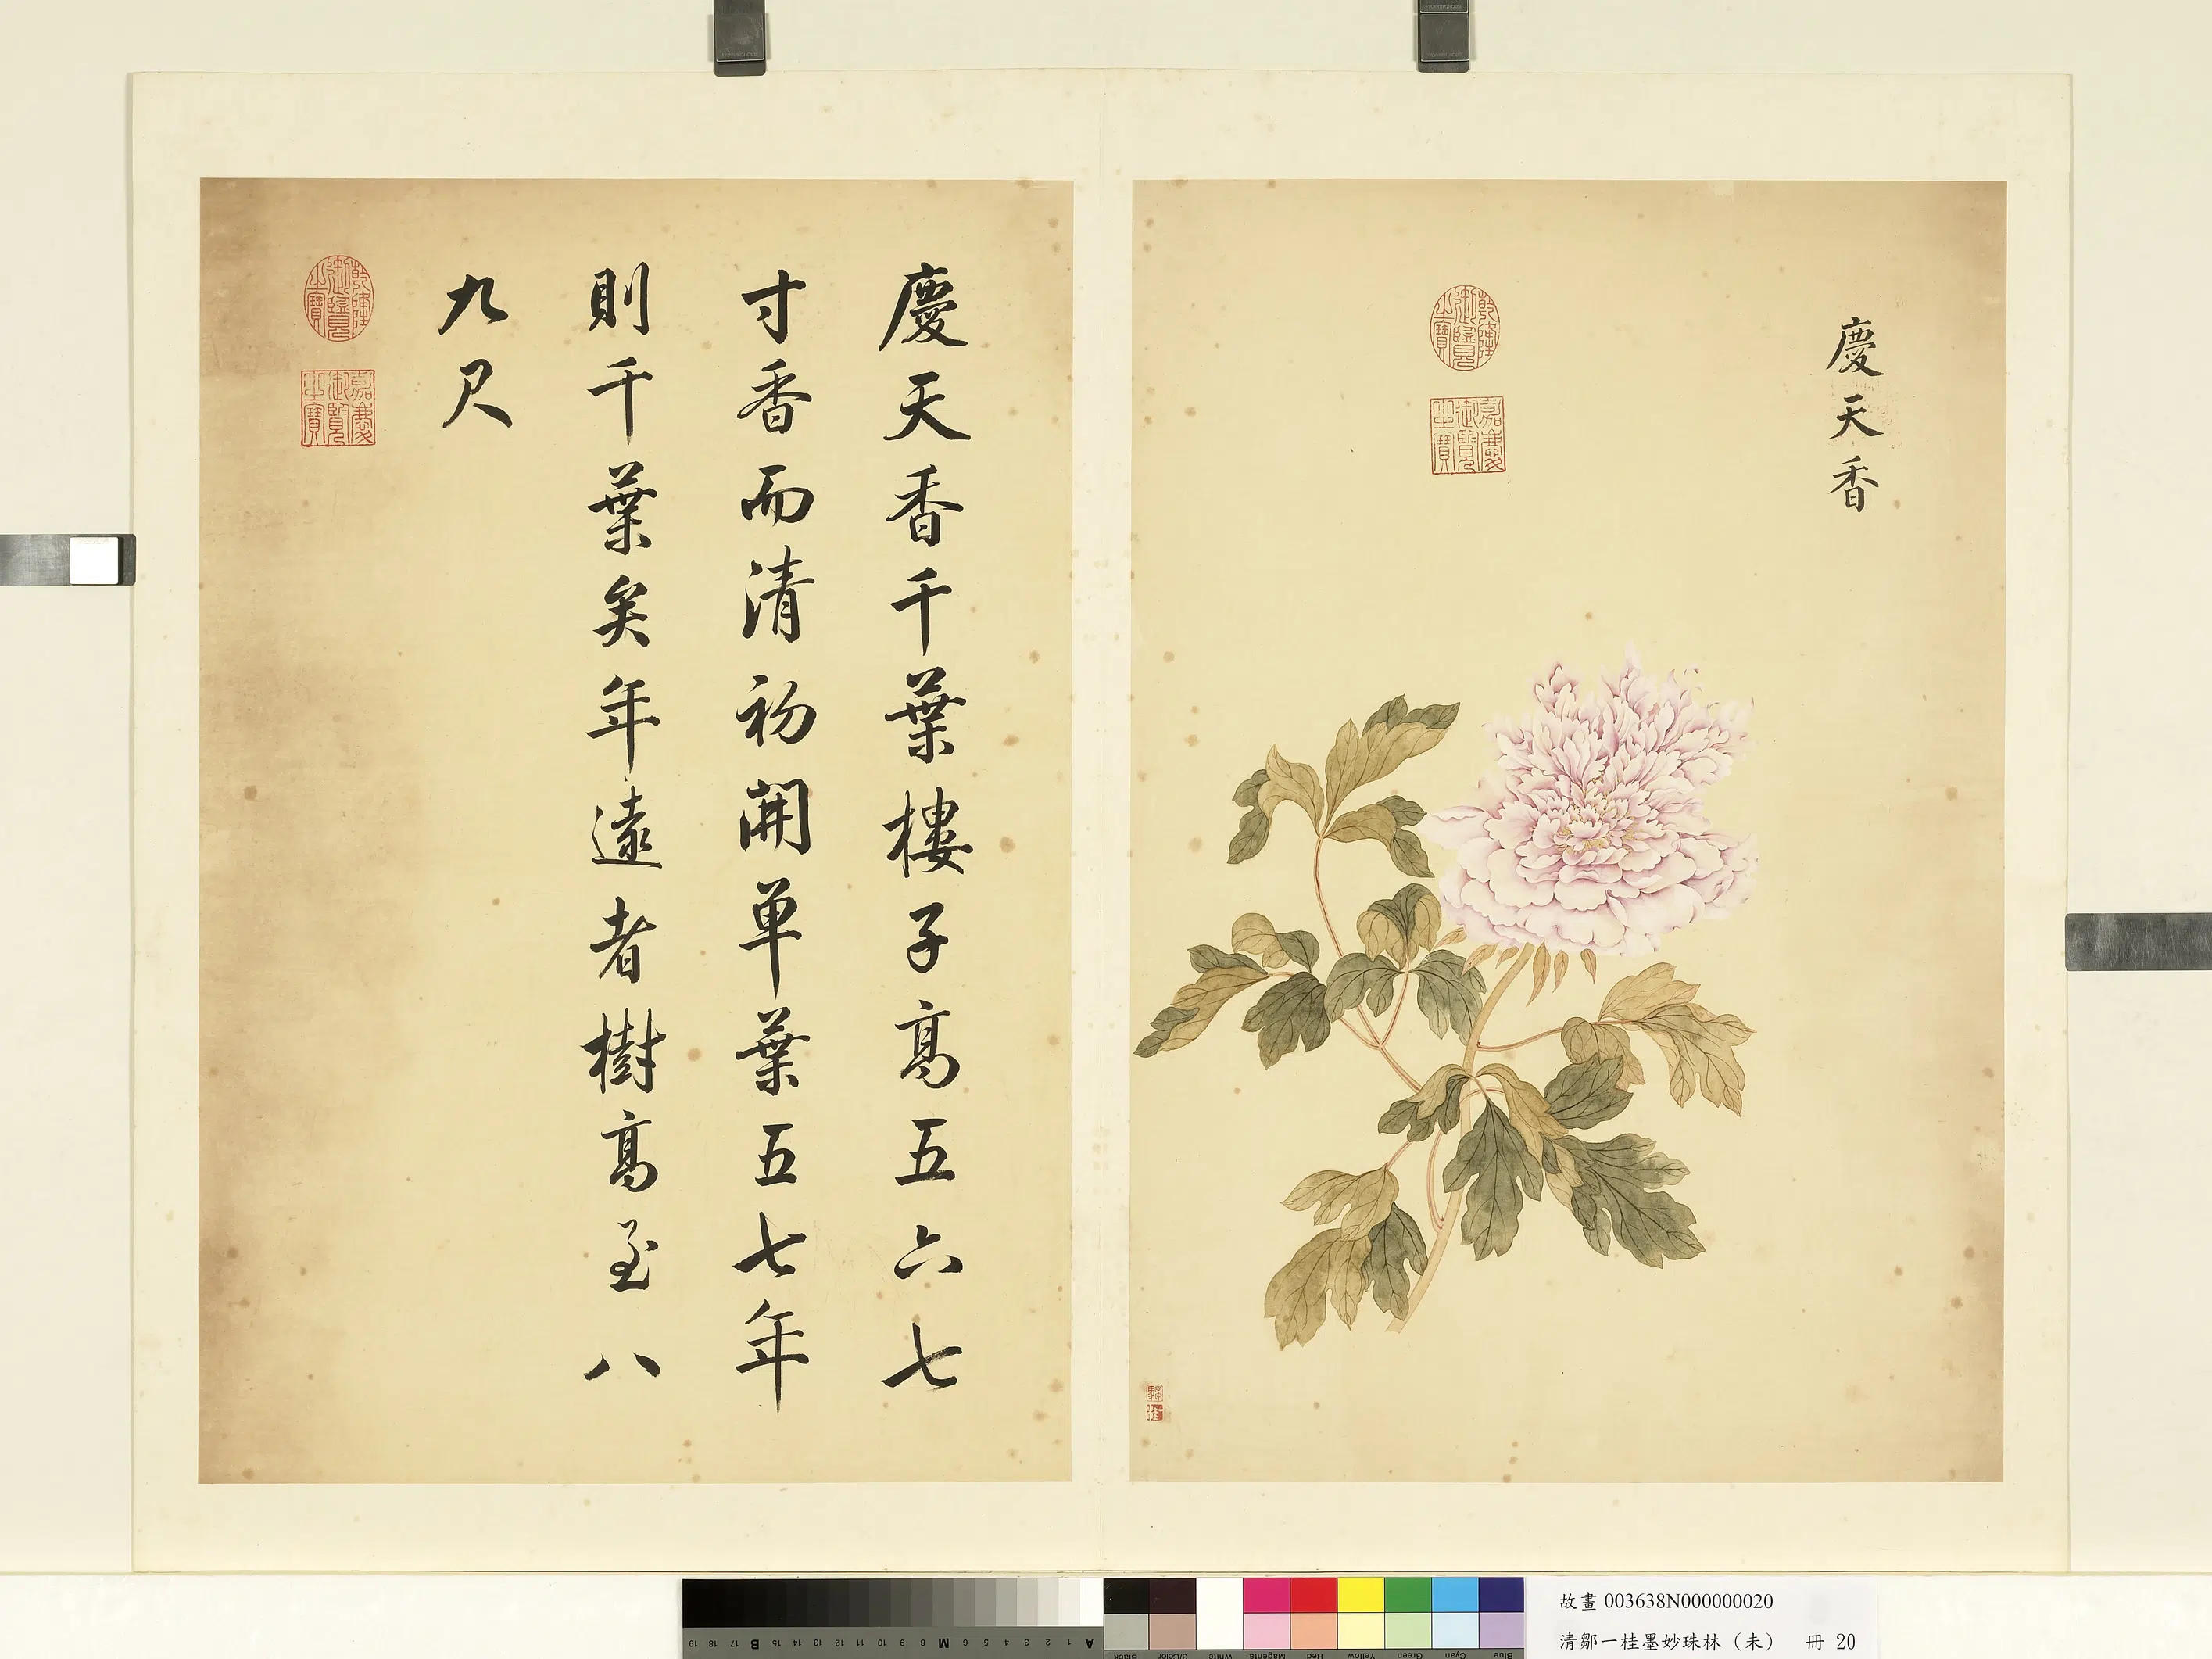 慶天香
乾隆御覽之寶
嘉慶御覽之寶
慶天香千葉樓子高五六七
寸香而清初開单葉五七年
則千葉矣年遠者樹高至八
九尺
乾隆御覽之寶
嘉慶御覽之寶
故畫 003638N000000020
清鄒一桂墨妙珠林（未） 冊 20
19 18 17 B 16 15 14 13 12 11 10 9 8 M 7 6 5 4 3 2 1 A
Black 3/Color White Magenta Red Yellow Green Cyan Blue